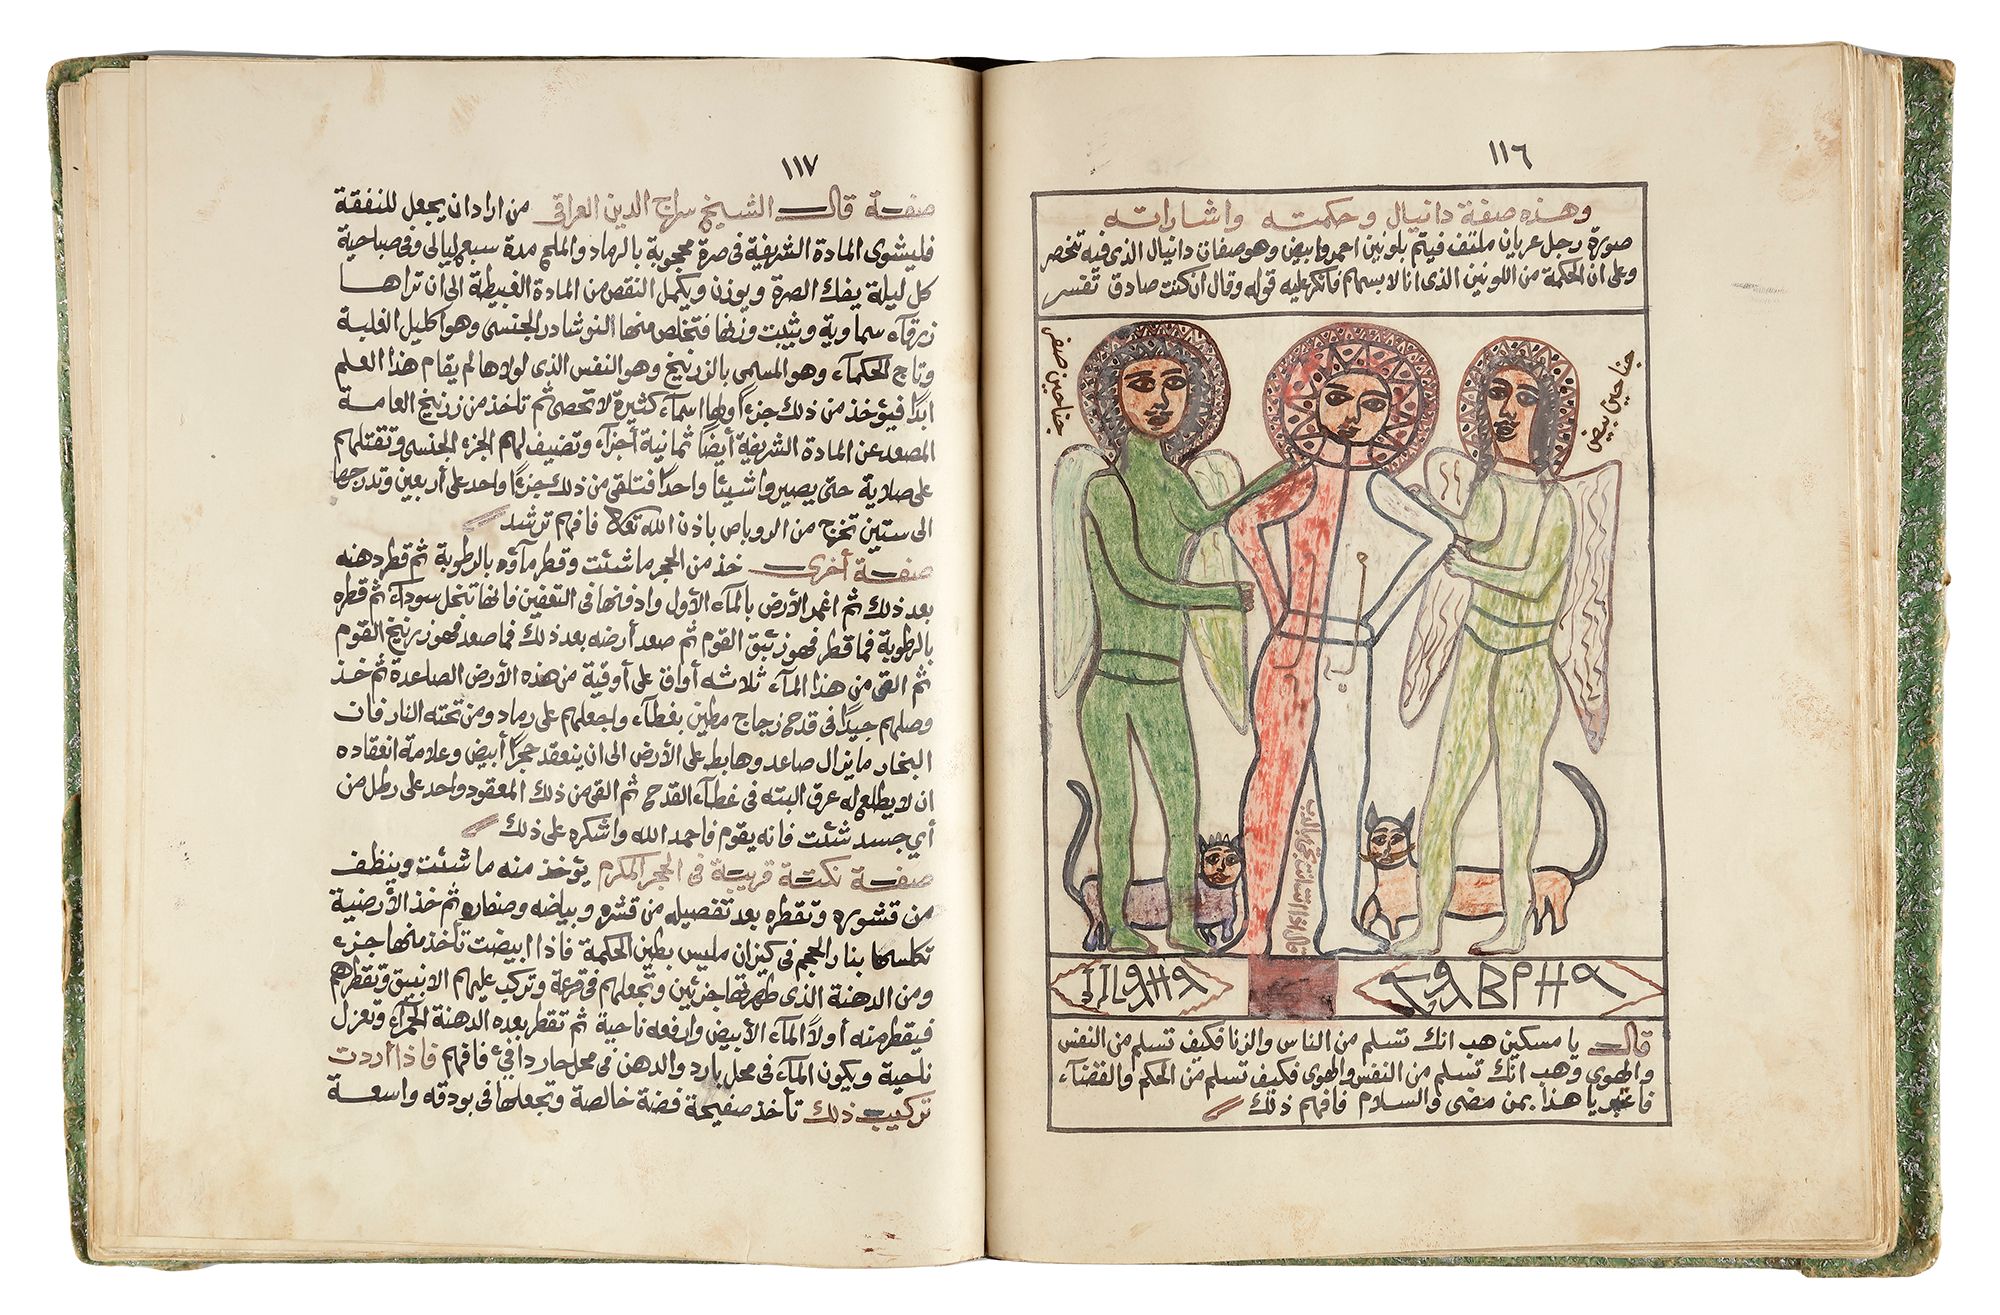 ١١٦
وهذه صفة دانيال وحكمته واشاراته
صورة رجل عريان ملتف فيتم بلونين احمر وابيض وهو صفات دانيال الذى فيه تنحصر
وعلى ان الحكمة من اللونين الذى انا لابسهام فانكر عليه قوله وقال ان كنت صادق تفسر
جناحين بيض
جناحين صفر
قال يا مسكين هب انك تسلم من الناس والزنا فكيف تسلم من النفس
والهوى وهب انك تسلم من النفس والهوى فكيف تسلم من الحكم والقضآء
فاعتبر يا هذا بمن مضى والسلام فافهم ذلك
١١٧
صفة قال الشيخ سراج الدين العراقى من اراد ان يجعل للنفقة
فليشوى المادة الشريفة فى صرة محجوبة بالرماد والملح مدة سبع ليالى وفى صباحية
كل ليلة يفك الصرة ويوزن ويكمل النقص من المادة الغبيطة الى ان تراها
زرقآء سماوية ويثبت وزنها فتخلص منها النوشادر الجنسى وهو اكليل الغلبة
وتاج الحكمآء وهو المسمى بالزرنيخ وهو النفس الذى لولاها لم يقام هذا العلم
ابدًا فيؤخذ من ذلك جزءًا ولها اسمآء كثيرة لا تحصى ثم تاخذ من زرنيخ العامة
المصعد عن المادة الشريفة أيضاً ثمانية أجزآء وتضيف لهم الجزء الجنسى وتقتلهم
على صلاية حتى يصيروا شيئا واحدًا فتلقى من ذلك جزءًا واحد على أربعين وتدرجها
الى ستين تخرج من الروباص باذن الله تعالى فافهم ترشد
صفة أخرى خذ من الحجر ما شئت وقطر مآؤه بالرطوبة ثم قطر دهنه
بعد ذلك ثم اغمر الأرض بالمآء الأول وادفنها فى التعفين فانها تنحل سودآء ثم قطره
بالرطوبة فما قطر فهو زئبق القوم ثم صعد أرضه بعد ذلك فما صعد فهو زرنيخ القوم
ثم القى من هذا المآء ثلاثه أواق على أوقية من هذه الأرض الصاعدة ثم خذ
وصلهم جيدًا فى قدح زجاج مطين بغطآء واجعلهم على رماد ومن تحته النار فان
البخار ما يزال صاعد وهابط على الأرض الى ان ينعقد حجرًا أبيض وعلامة انعقاده
ان لا يطلع له عرق البته فى غطآء القدح ثم القى من ذلك المعقود واحد على رطل من
أي جسد شئت فانه يقوم فاحمد الله واشكره على ذلك
صفة نكتة قريبة فى الحجر المكرم يؤخذ منه ما شئت وينظف
من قشوره وتقطره بعد تفصيله من قشره وبياضه وصفاره ثم خذ الأرضية
تكلسها بنار الحجم فى كيزان ملبس بطين الحكمة فاذا ابيضت تأخذ منها جزء
ومن الدهنة الذى طهرتها جزئين وتجعلهم فى قرعة وتركب عليهم الانبيق وتقطرهم
فيقطر منه أولاً المآء الأبيض وارفعه ناحية ثم تقطر بعده الدهنة الحمرآء وتعزل
ناحية ويكون المآء فى محل بارد والدهن فى محل حار دافئ فافهم فاذا أردت
تركيب ذلك تأخذ صفيحة فضة خالصة وتجعلها فى بودقه واسعة